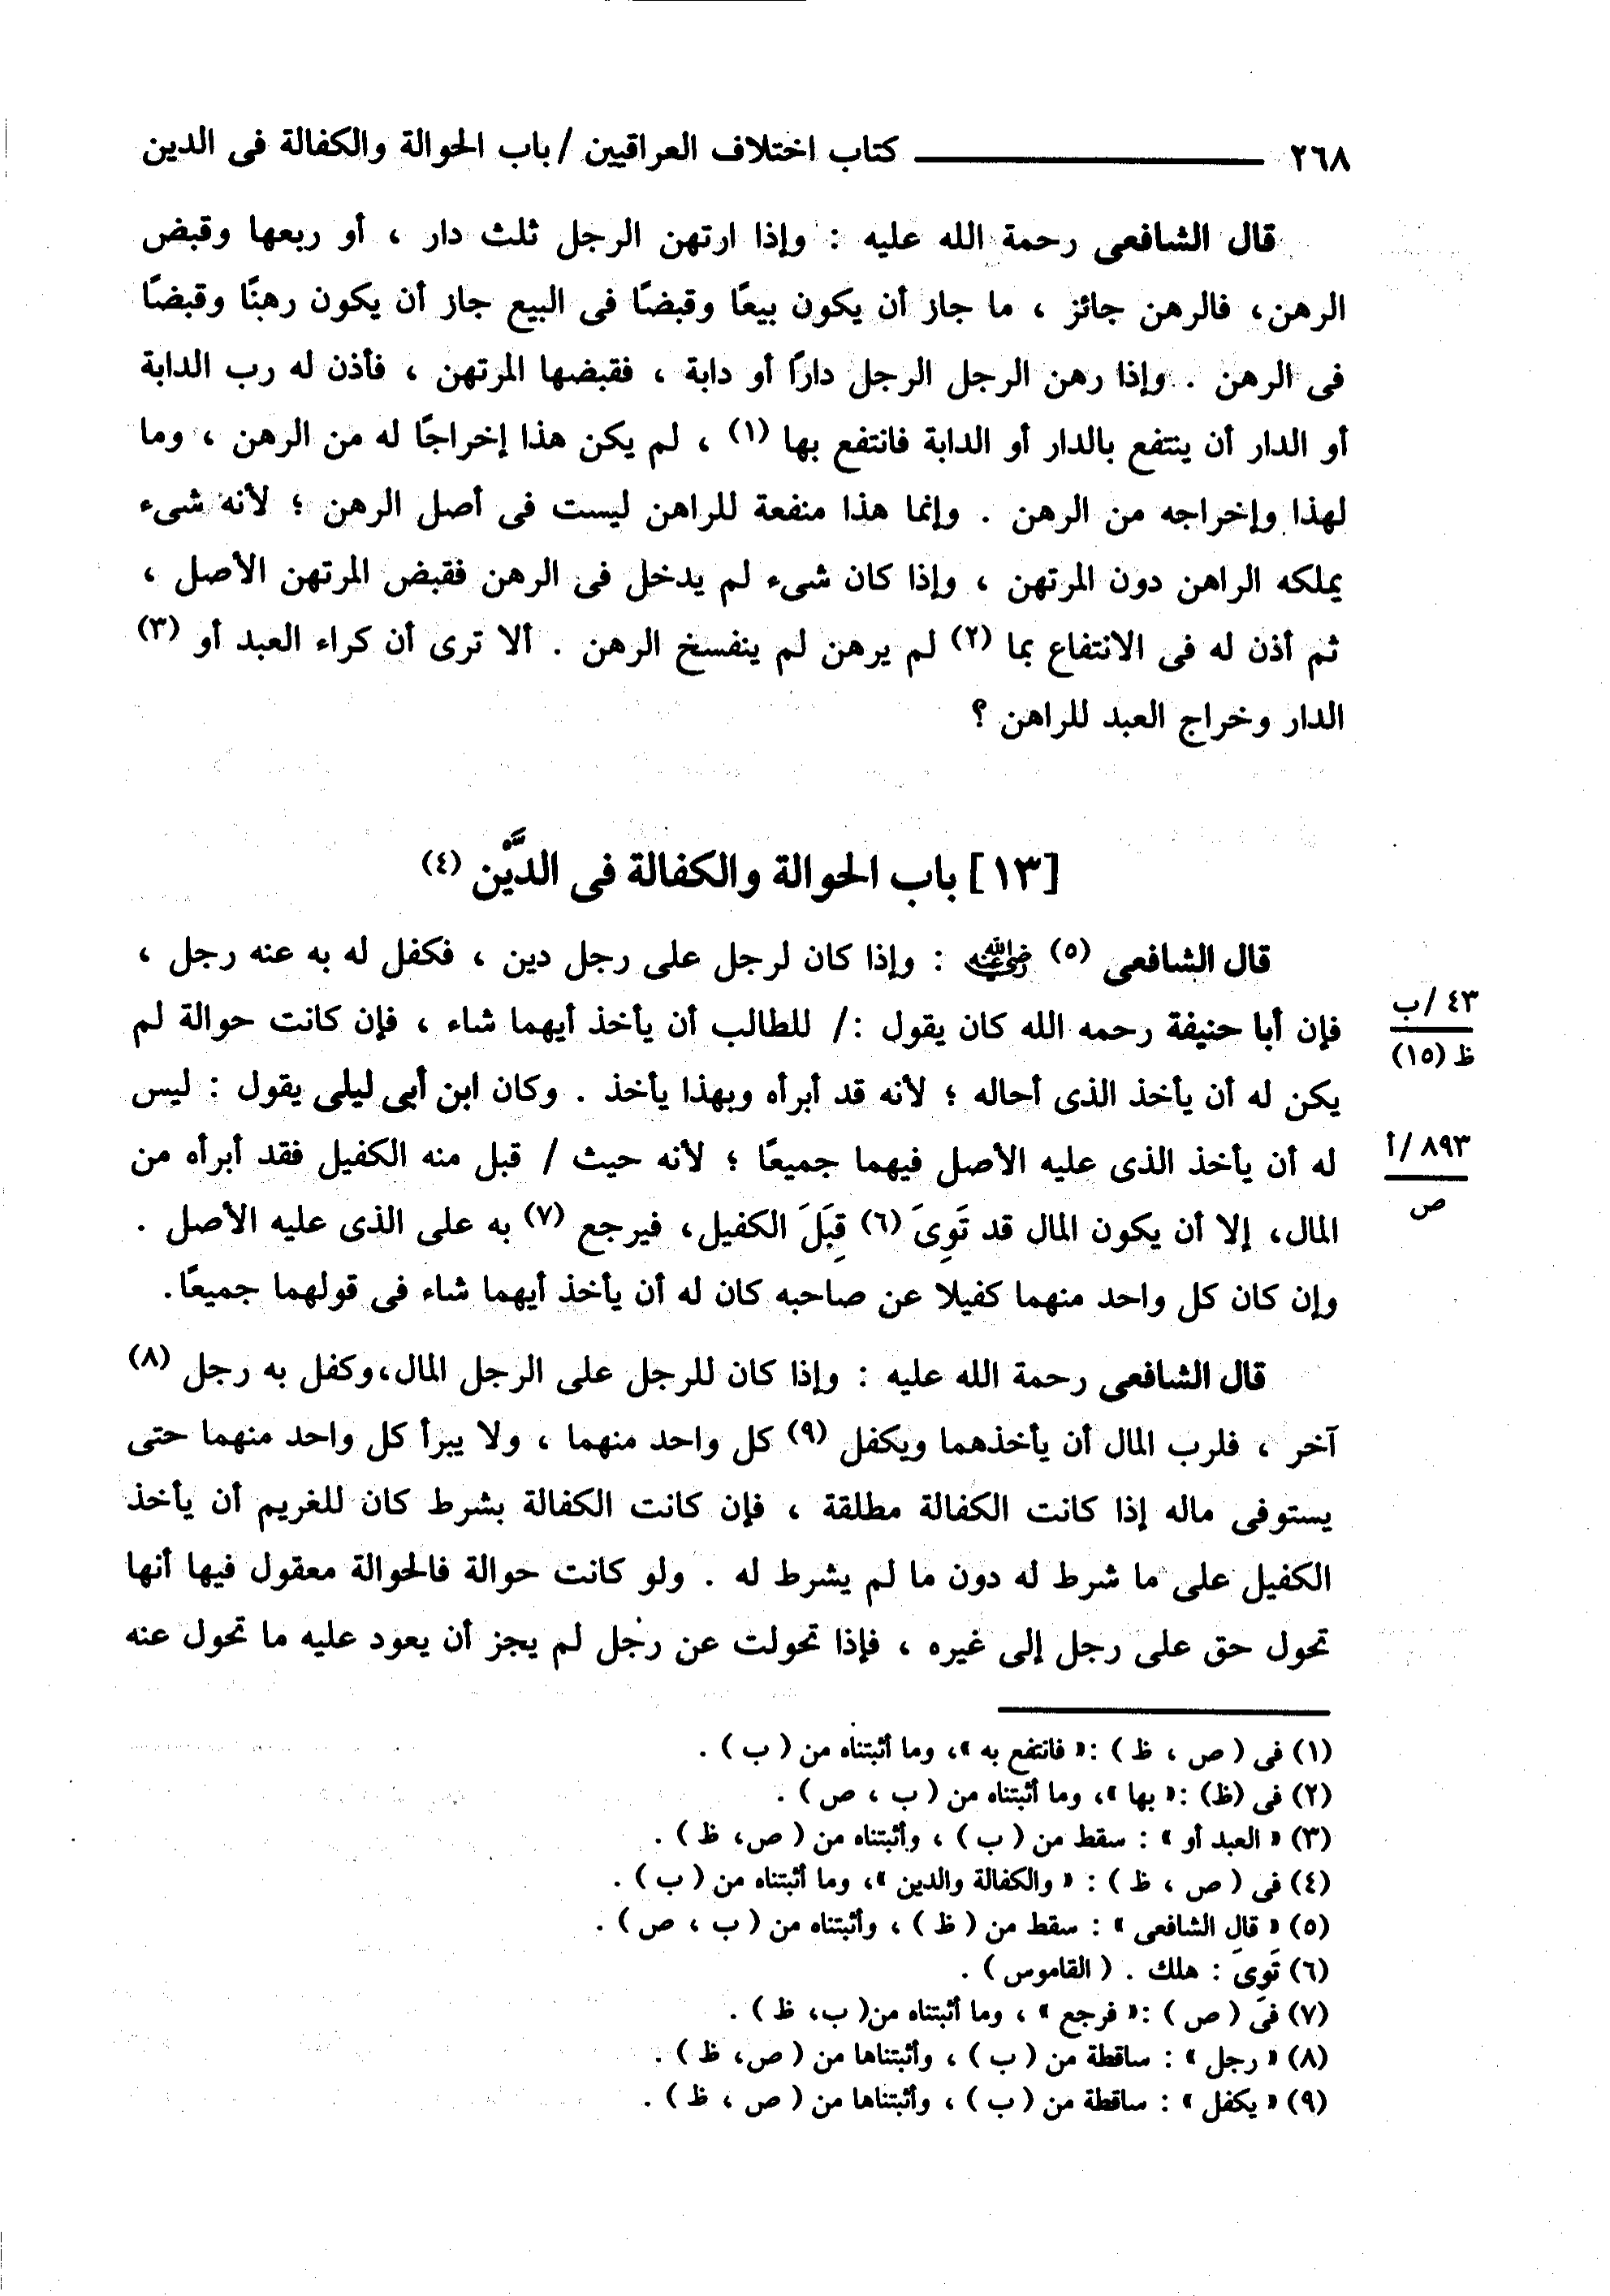 ٢٦٨ ــــــــــــــــ كتاب اختلاف العراقيين / باب الحوالة والكفالة فى الدين
قال الشافعى رحمة الله عليه : وإذا ارتهن الرجل ثلث دار ، أو ربعها وقبض
الرهن، فالرهن جائز ، ما جاز أن يكون بيعًا وقبضًا فى البيع جاز أن يكون رهنًا وقبضًا
فى الرهن . وإذا رهن الرجل الرجل دارًا أو دابة ، فقبضها المرتهن ، فأذن له رب الدابة
أو الدار أن ينتفع بالدار أو الدابة فانتفع بها (١) ، لم يكن هذا إخراجًا له من الرهن ، وما
لهذا وإخراجه من الرهن . وإنما هذا منفعة للراهن ليست فى أصل الرهن ؛ لأنه شىء
يملكه الراهن دون المرتهن ، وإذا كان شىء لم يدخل فى الرهن فقبض المرتهن الأصل ،
ثم أذن له فى الانتفاع بما (٢) لم يرهن لم ينفسخ الرهن . ألا ترى أن كراء العبد أو (٣)
الدار وخراج العبد للراهن ؟
[١٣] باب الحوالة والكفالة فى الدَّيْن (٤)
قال الشافعى (٥) رضي الله عنه : وإذا كان لرجل على رجل دين ، فكفل له به عنه رجل ،
فإن أبا حنيفة رحمه الله كان يقول :/ للطالب أن يأخذ أيهما شاء ، فإن كانت حوالة لم
٤٣ /ب
ظ (١٥)
يكن له أن يأخذ الذى أحاله ؛ لأنه قد أبرأه وبهذا يأخذ . وكان ابن أبى ليلى يقول : ليس
له أن يأخذ الذى عليه الأصل فيهما جميعًا ؛ لأنه حيث / قبل منه الكفيل فقد أبرأه من
٨٩٣ /أ
ص
المال، إلا أن يكون المال قد تَوِىَ (٦) قِبَلَ الكفيل، فيرجع (٧) به على الذى عليه الأصل .
وإن كان كل واحد منهما كفيلا عن صاحبه كان له أن يأخذ أيهما شاء فى قولهما جميعًا.
قال الشافعى رحمة الله عليه : وإذا كان للرجل على الرجل المال،وكفل به رجل (٨)
آخر ، فلرب المال أن يأخذهما ويكفل (٩) كل واحد منهما ، ولا يبرأ كل واحد منهما حتى
يستوفى ماله إذا كانت الكفالة مطلقة ، فإن كانت الكفالة بشرط كان للغريم أن يأخذ
الكفيل على ما شرط له دون ما لم يشرط له . ولو كانت حوالة فالحوالة معقول فيها أنها
تحول حق على رجل إلى غيره ، فإذا تحولت عن رجل لم يجز أن يعود عليه ما تحول عنه
(١) فى ( ص ، ظ ) :« فانتفع به »، وما أثبتناه من ( ب ) .
(٢) فى (ظ) :« بها »، وما أثبتناه من ( ب ، ص ) .
(٣) « العبد أو » : سقط من ( ب ) ، وأثبتناه من ( ص، ظ ) .
(٤) فى ( ص ، ظ ) : « والكفالة والدين »، وما أثبتناه من ( ب ) .
(٥) « قال الشافعى » : سقط من ( ظ ) ، وأثبتناه من ( ب ، ص ) .
(٦) تَوِىَ : هلك . ( القاموس ) .
(٧) فى ( ص ) :« فرجع » ، وما أثبتناه من( ب، ظ ) .
(٨) « رجل » : ساقطة من ( ب ) ، وأثبتناها من ( ص، ظ ) .
(٩) « يكفل » : ساقطة من ( ب ) ، وأثبتناها من ( ص ، ظ ) .